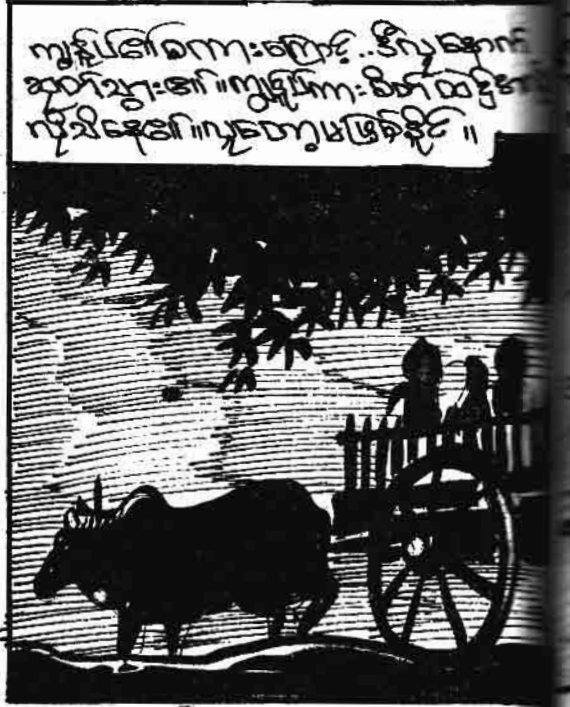 ကျွန်ုပ်၏စကားကြောင့်..ဒီလူနောက်
ဆုတ်သွား၏။ကျွန်ုပ်ကား စိတ်ထဲ၌
လိုသိနေ၏။လူတော့မဖြစ်နိုင်။